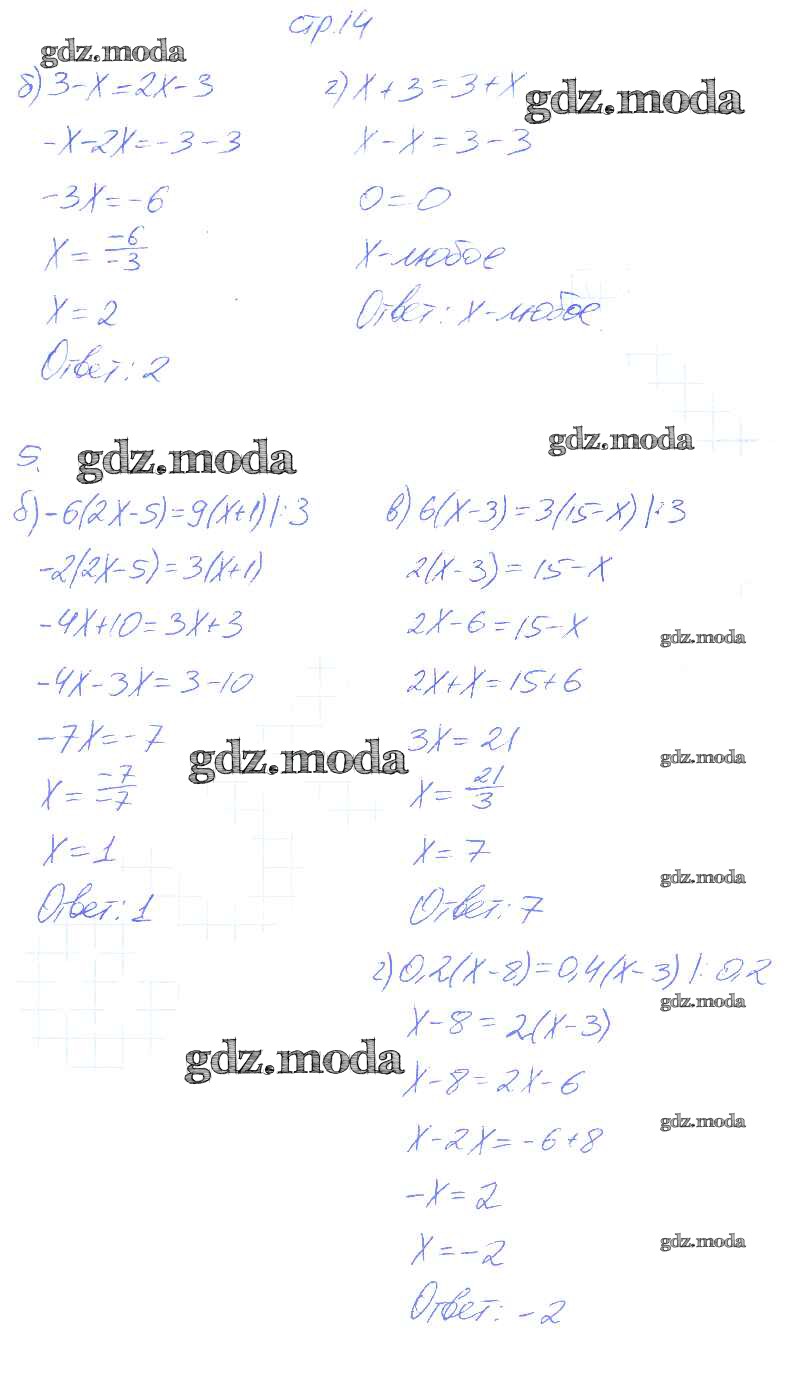 стр.14
gdz.moda
б) 3-x=2x-3
-x-2x=-3-3
-3x=-6
x= -6/-3
x=2
Ответ: 2
г) x+3=3+x
gdz.moda
x-x=3-3
0=0
x-любое
Ответ: x-любое
5.
gdz.moda
gdz.moda
б) -6(2x-5)=9(x+1)|:3
-2(2x-5)=3(x+1)
-4x+10=3x+3
-4x-3x=3-10
-7x=-7
x= -7/-7
x=1
Ответ: 1
gdz.moda
в) 6(x-3)=3(15-x)|:3
2(x-3)=15-x
2x-6=15-x
gdz.moda
2x+x=15+6
3x=21
gdz.moda
x= 21/3
x=7
gdz.moda
Ответ: 7
г) 0,2(x-8)=0,4(x-3)|:0,2
gdz.moda
x-8=2(x-3)
gdz.moda
x-8=2x-6
gdz.moda
x-2x=-6+8
-x=2
gdz.moda
x=-2
Ответ: -2